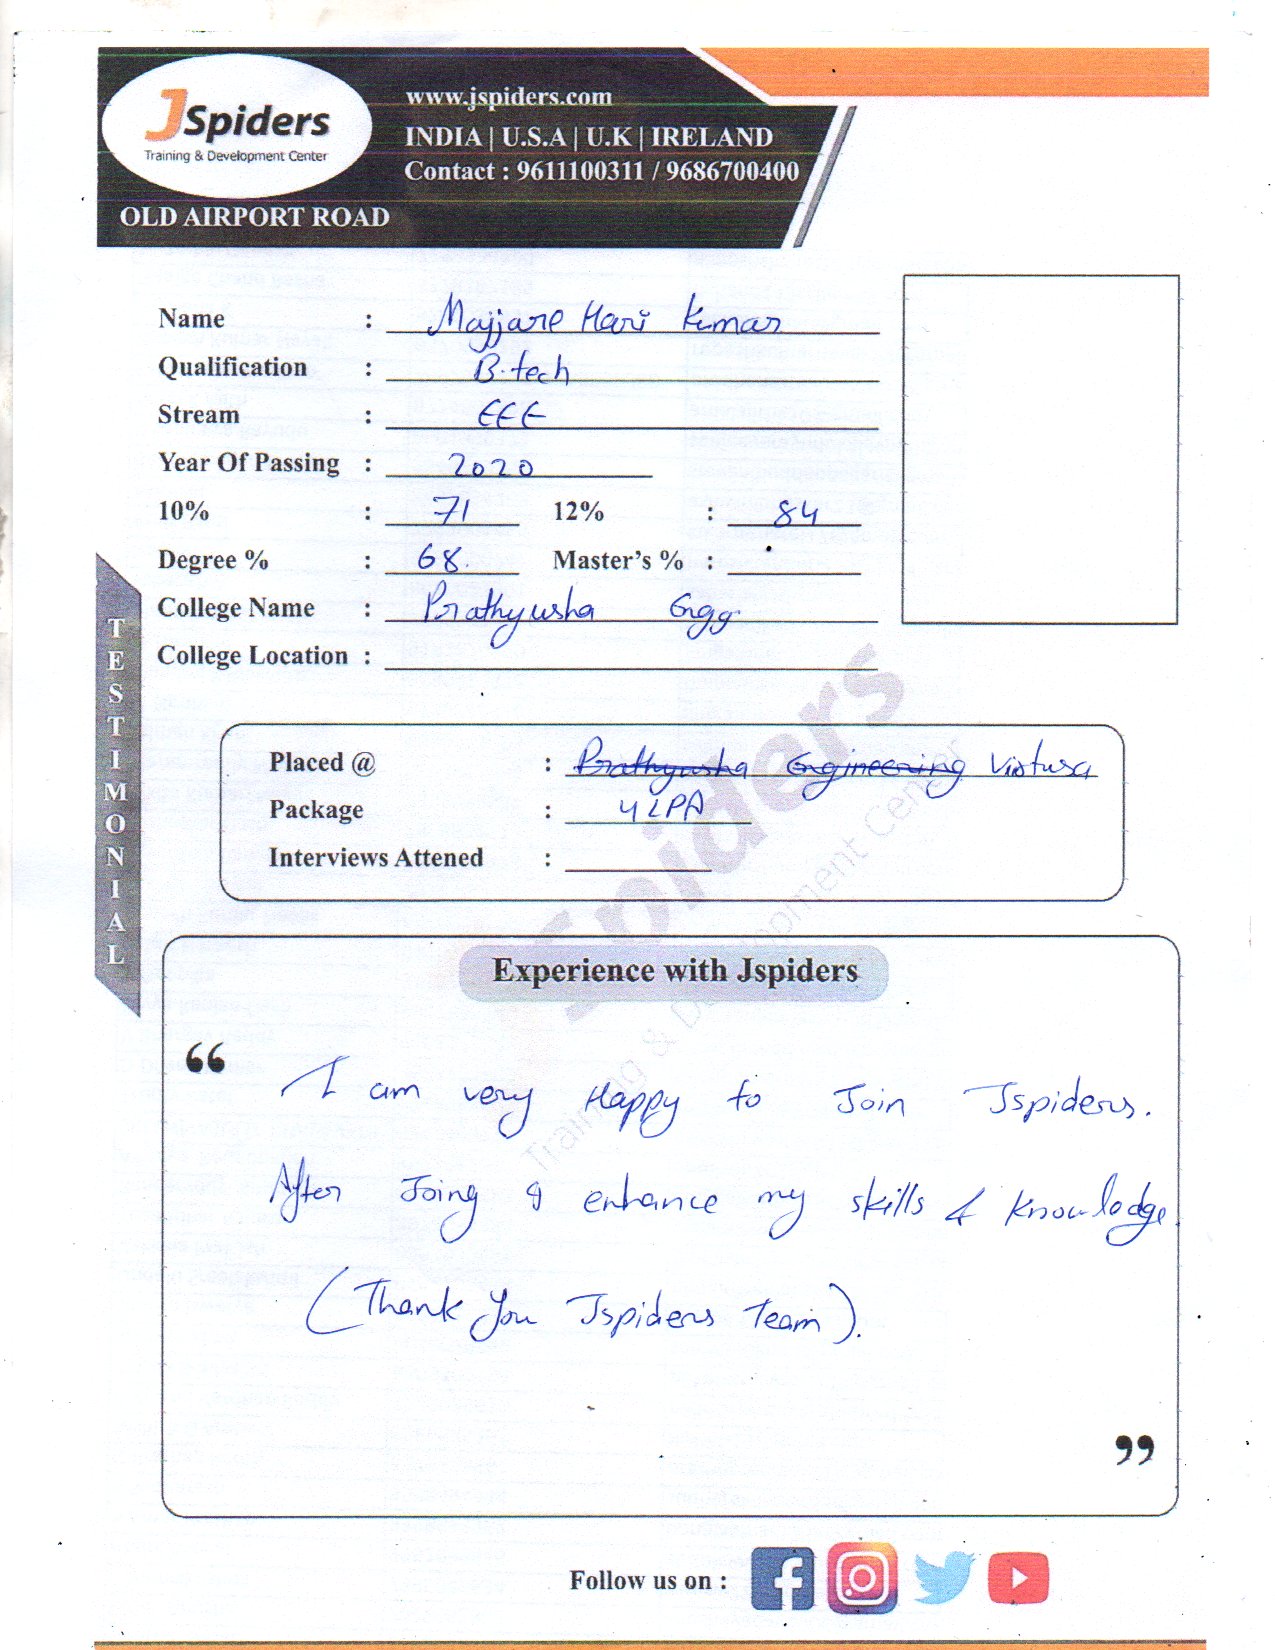 JSpiders
Training & Development Center
OLD AIRPORT ROAD
www.jspiders.com
INDIA | U.S.A | U.K | IRELAND
Contact : 9611100311 / 9686700400
Name : Majjare Hari Kumar
Qualification : B.tech
Stream : EEE
Year Of Passing : 2020
10% : 71 12% : 84
Degree % : 68. Master's % :
College Name : Prathyusha Engg
College Location :
TESTIMONIAL
Placed @ : Prathyusha Engineering Virtusa
Package : 4 LPA
Interviews Attened :
Spiders
Training & Development Center
Experience with Jspiders
“
I am very Happy to Join Jspiders.
After Joing I enhance my skills & Knowladge
(Thank You Jspiders Team).
”
Follow us on :